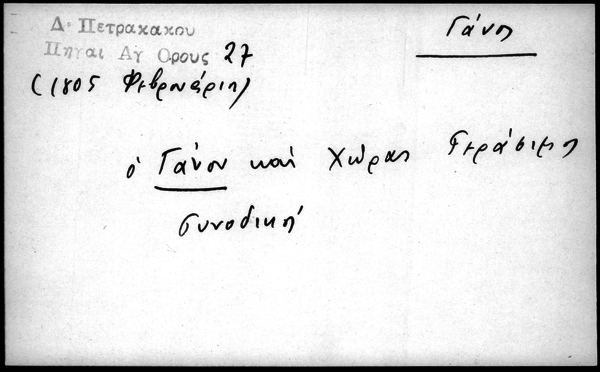 Γάνος
Δ. Πετρακάκου
Πηγαί Αγ Ορους 27
(1805 Φεβρουάριος)
ὁ Γάνου καὶ Χώρας Γεράσιμος
Συνοδική